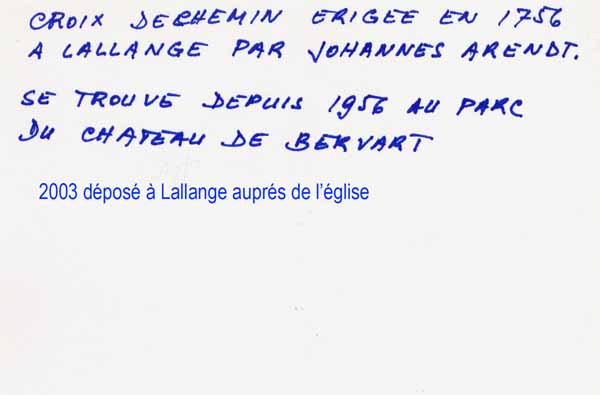 CROIX DECHEMIN ERIGEE EN 1756
A LALLANGE PAR JOHANNES ARENDT.
SE TROUVE DEPUIS 1956 AU PARC
DU CHATEAU DE BERVART
2003 déposé à Lallange auprés de l'église